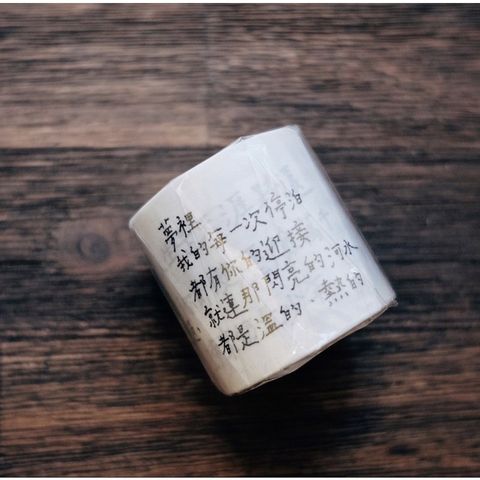 夢裡
我的每一次停泊
都有你的迎接
就連那閃亮的河水
都是溫的、熱的